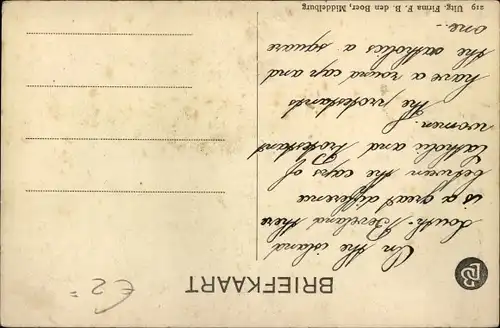 BRIEFKAART
In the island
South-Beveland there
is a great difference
between the caps of
Catholic and Protestant
women.
The protestants
have a round cap and
the catholics a square
one.-
219 Uitg. Firma F. B. den Boer, Middelburg
€2=